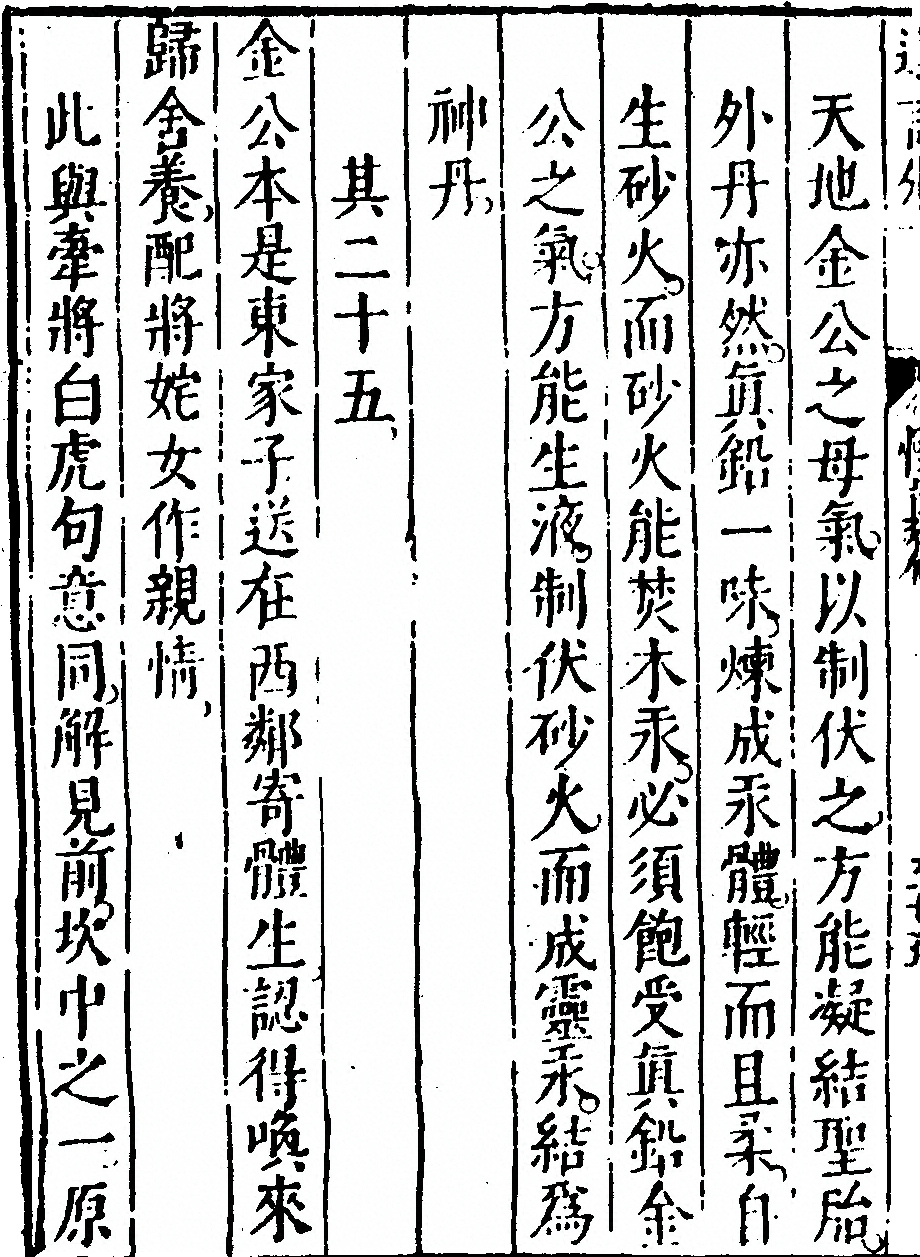 天地金公之母氣以制伏之方能凝結聖胎
外丹亦然眞鉛一味煉成汞體輕而且柔自
生砂火而砂火能焚木汞必須飽受眞鉛金
公之氣方能生液制伏砂火而成靈汞結爲
神丹
其二十五
金公本是東家子送在西鄰寄體生認得喚來
歸舍養配將姹女作親情
此與牽將白虎句意同解見前坎中之一原